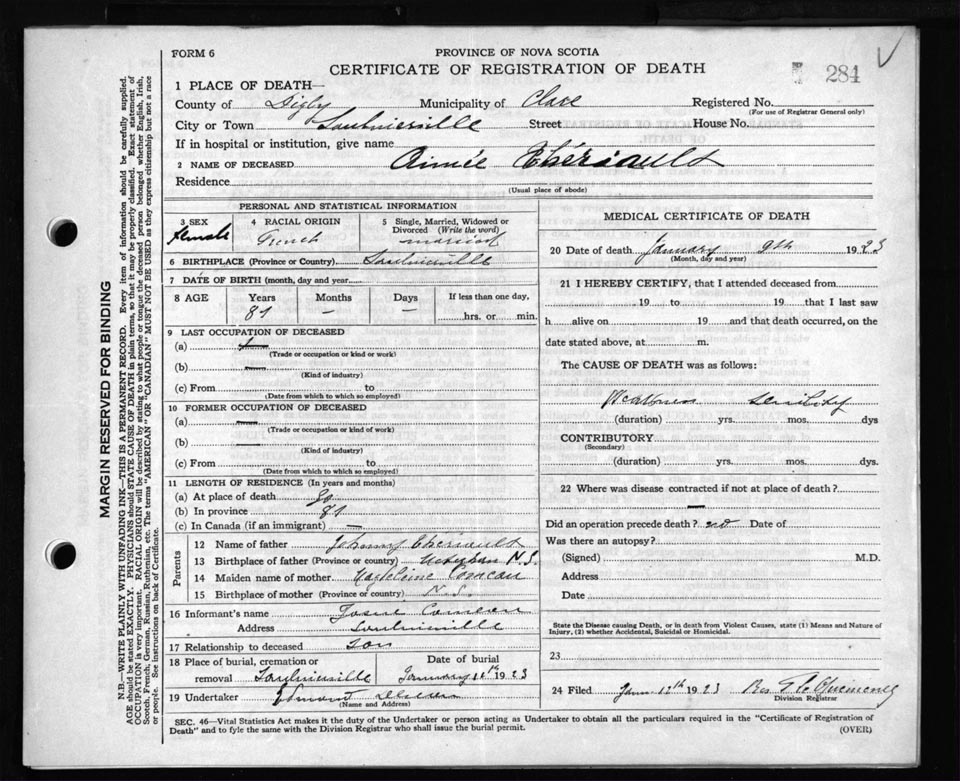 FORM 6
PROVINCE OF NOVA SCOTIA
CERTIFICATE OF REGISTRATION OF DEATH
284
1 PLACE OF DEATH—
County of Digby Municipality of Clare Registered No.
(For use of Registrar General only)
City or Town Saulnierville Street House No.
If in hospital or institution, give name
2 NAME OF DECEASED Aimée Theriault
Residence
(Usual place of abode)
PERSONAL AND STATISTICAL INFORMATION
3 SEX 4 RACIAL ORIGIN 5 Single, Married, Widowed or Divorced (Write the word)
female French married
6 BIRTHPLACE (Province or Country) Saulnierville
7 DATE OF BIRTH (month, day and year)
8 AGE Years Months Days If less than one day,
81 — — hrs. or min.
9 LAST OCCUPATION OF DECEASED
(a) —
(Trade or occupation or kind or work)
(b) —
(Kind of industry)
(c) From to
(Date from which to which so employed)
10 FORMER OCCUPATION OF DECEASED
(a) —
(Trade or occupation or kind of work)
(b) —
(Kind of industry)
(c) From to
(Date from which to which so employed)
11 LENGTH OF RESIDENCE (In years and months)
(a) At place of death
(b) In province 81
(c) In Canada (if an immigrant) —
Parents
12 Name of father Johnny Theriault
13 Birthplace of father (Province or country) N.S.
14 Maiden name of mother Madeleine Comeau
15 Birthplace of mother (Province or country) N.S.
16 Informant's name Comeau
Address Saulnierville
17 Relationship to deceased son
18 Place of burial, cremation or removal Saulnierville Date of burial January 11th 1923
19 Undertaker
(Name and Address)
MEDICAL CERTIFICATE OF DEATH
20 Date of death January 9th 1923
(Month, day and year)
21 I HEREBY CERTIFY, that I attended deceased from
19 to 19 that I last saw
h alive on 19 and that death occurred, on the
date stated above, at m.
The CAUSE OF DEATH was as follows:
Weakness senility
(duration) yrs. mos. dys
CONTRIBUTORY
(Secondary)
(duration) yrs. mos. dys.
22 Where was disease contracted if not at place of death?
—
Did an operation precede death? no Date of
Was there an autopsy?
(Signed) M.D.
Address
Date
State the Disease causing Death, or in death from Violent Causes, state (1) Means and Nature of
Injury, (2) whether Accidental, Suicidal or Homicidal.
23
24 Filed Jan. 12th 1923
Division Registrar
SEC. 46—Vital Statistics Act makes it the duty of the Undertaker or person acting as Undertaker to obtain all the particulars required in the "Certificate of Registration of
Death" and to fyle the same with the Division Registrar who shall issue the burial permit. (OVER)
MARGIN RESERVED FOR BINDING
N.B.—WRITE PLAINLY WITH UNFADING INK—THIS IS A PERMANENT RECORD. Every item of information should be carefully supplied.
AGE should be stated EXACTLY. PHYSICIANS should STATE CAUSE OF DEATH in plain terms, so that it may be properly classified. Exact statement of
OCCUPATION is very important. RACIAL ORIGIN will be described by stating to what people or tongue the deceased person belonged whether English, Irish,
Scotch, French, German, Russian, Ruthenian, etc. The terms "AMERICAN" OR "CANADIAN" MUST NOT BE USED as they express citizenship but not a race
or people. See instructions on back of Certificate.